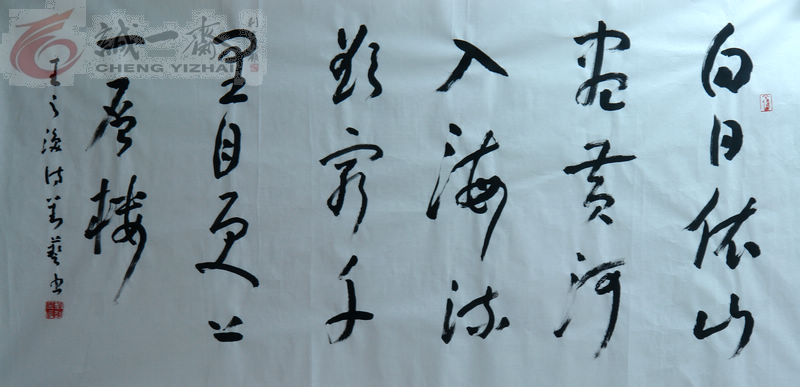 誠一齋
CHENG YIZHAI
白日依山
尽黄河
入海流
欲穷千
里目更上
一层楼
王之涣诗 藝书